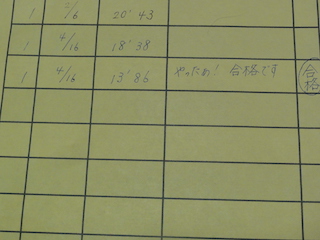 1 2/6 20" 43
1 4/16 18" 38
1 4/16 13" 86 やったぁ! 合格です 合格